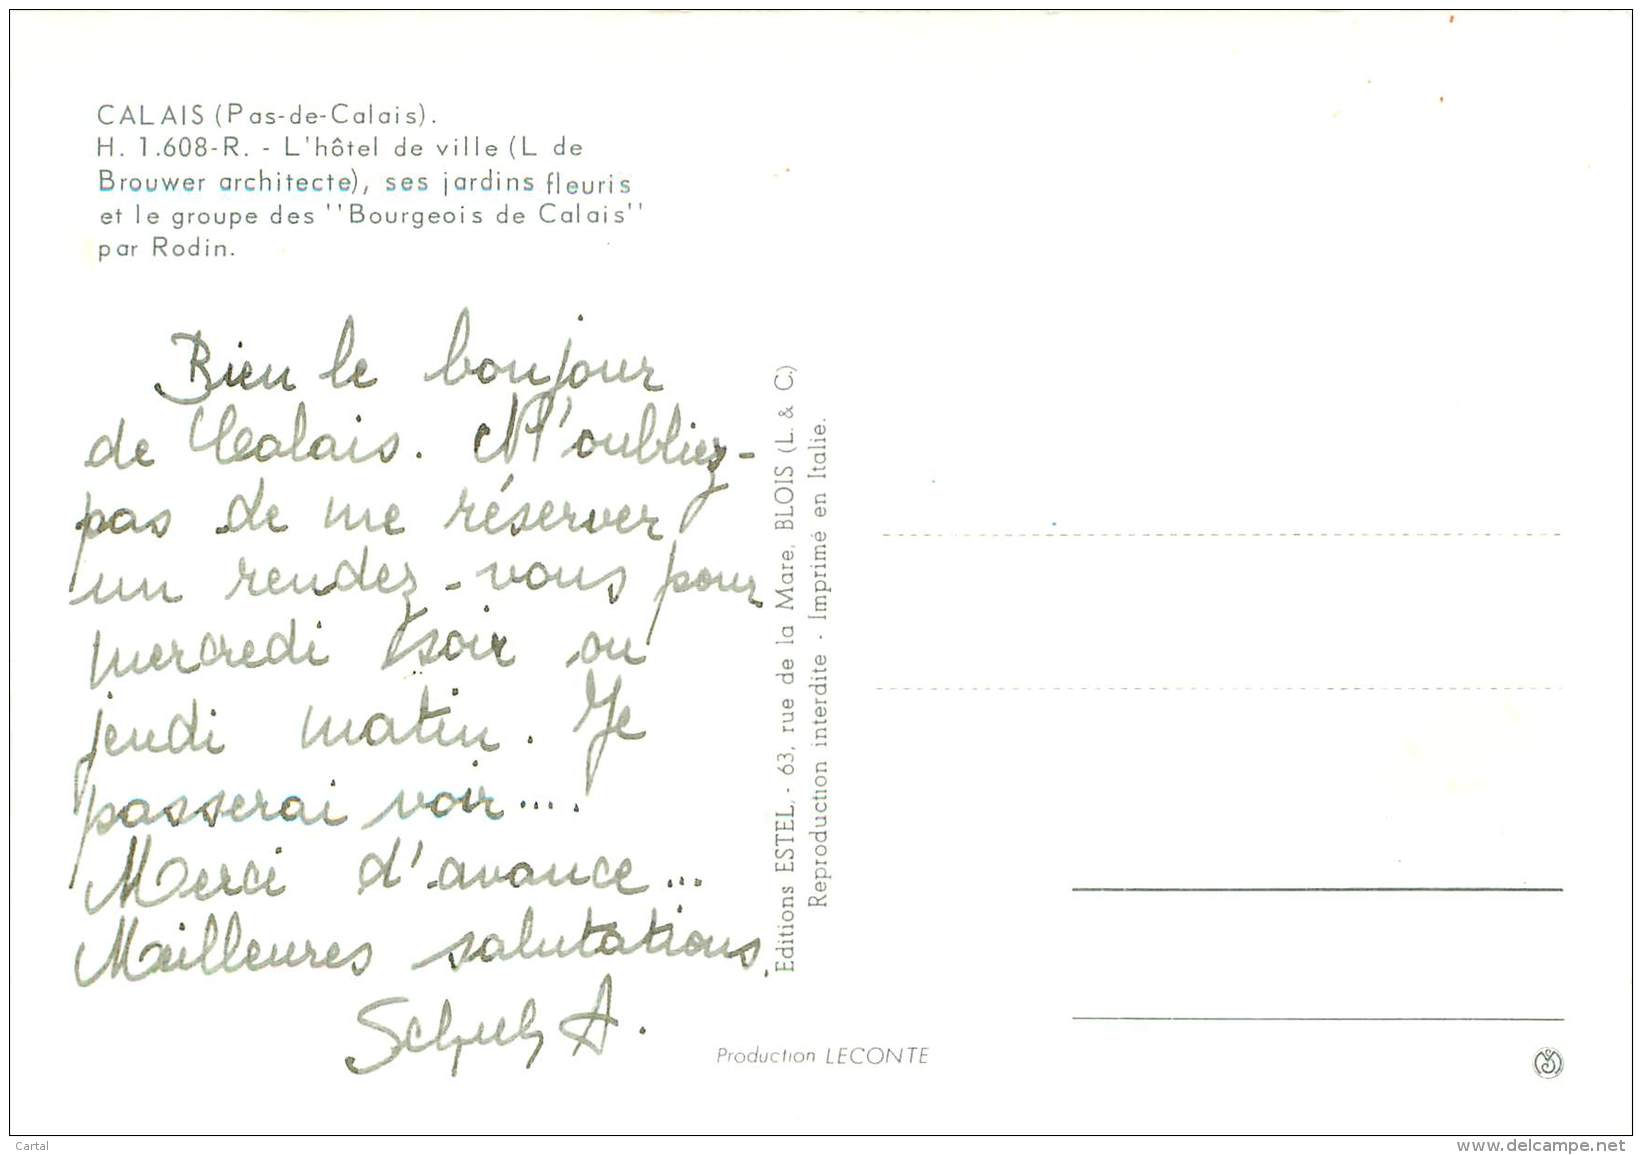 CALAIS (Pas-de-Calais).
H. 1.608-R. - L'hôtel de ville (L de
Brouwer architecte), ses jardins fleuris
et le groupe des ''Bourgeois de Calais''
par Rodin.
Bien le bonjour
de Calais. N'oubliez-
pas de me réserver
un rendez-vous pour
mercredi soir ou
jeudi matin. Je
passerai voir....
Merci d'avance...
Meilleures salutations,
A.
Editions ESTEL, - 63, rue de la Mare, BLOIS (L. & C.)
Reproduction interdite - Imprimé en Italie.
Production LECONTE
Cartal
www.delcampe.net